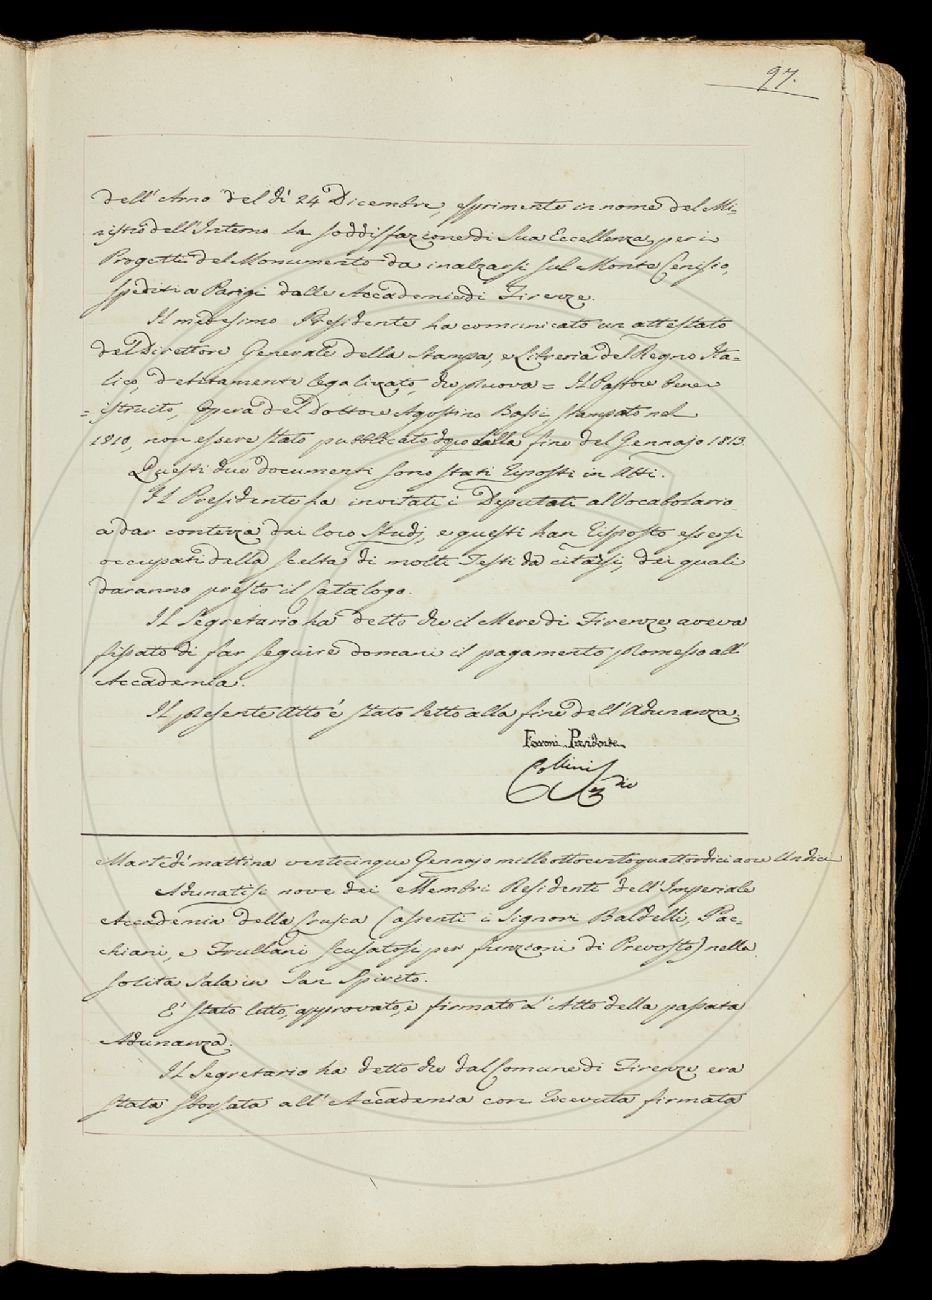 97.
dell'Arno del dì 24 Dicembre, esprimente in nome del Mi-
nistro dell'Interno la soddisfazione di Sua Eccellenza per i
Progetti del Monumento da inalzarsi sul Monte Cenisio,
spediti a Parigi dalle Accademie di Firenze.
Il medesimo Presidente ha comunicato un attestato
del Direttore Generale della Stampa, e Libreria del Regno Ita-
lico, debitamente legalizzato, che prova = Il Pastore bene
= istruito, Opera del Dottore Agostino Bassi, stampato nel
1810, non essere stato pubblicato della fine del Gennajo 1813.
Questi due documenti sono stati riposti in Atti.
Il Presidente ha invitati i Deputati al Vocabolario
a dar contezza dei loro Studj, e questi han risposto essersi
occupati della scelta di molti Testi da citarsi, dei quali
daranno presto il Catalogo.
Il Segretario ha detto che il Mere di Firenze aveva
fissato di far seguire domani il pagamento promesso all'
Accademia.
Il presente Atto è stato letto alla fine dell'Adunanza.
Ferroni Presidente
Collini Seg.rio
Martedì mattina venticinque Gennajo milleottocentoquattordici a ore Undici
Adunatisi nove dei Membri Residenti dell'Imperiale
Accademia della Crusca (assenti i Signori Baldelli, Pac-
chiani, e Frullani scusatosi per funzioni di Prevosto) nella
solita sala in San Spirito.
E' stato letto, approvato, e firmato l'Atto della passata
Adunanza.
Il Segretario ha detto che dal Comune di Firenze era
stata sborsata all'Accademia con ricevuta firmata